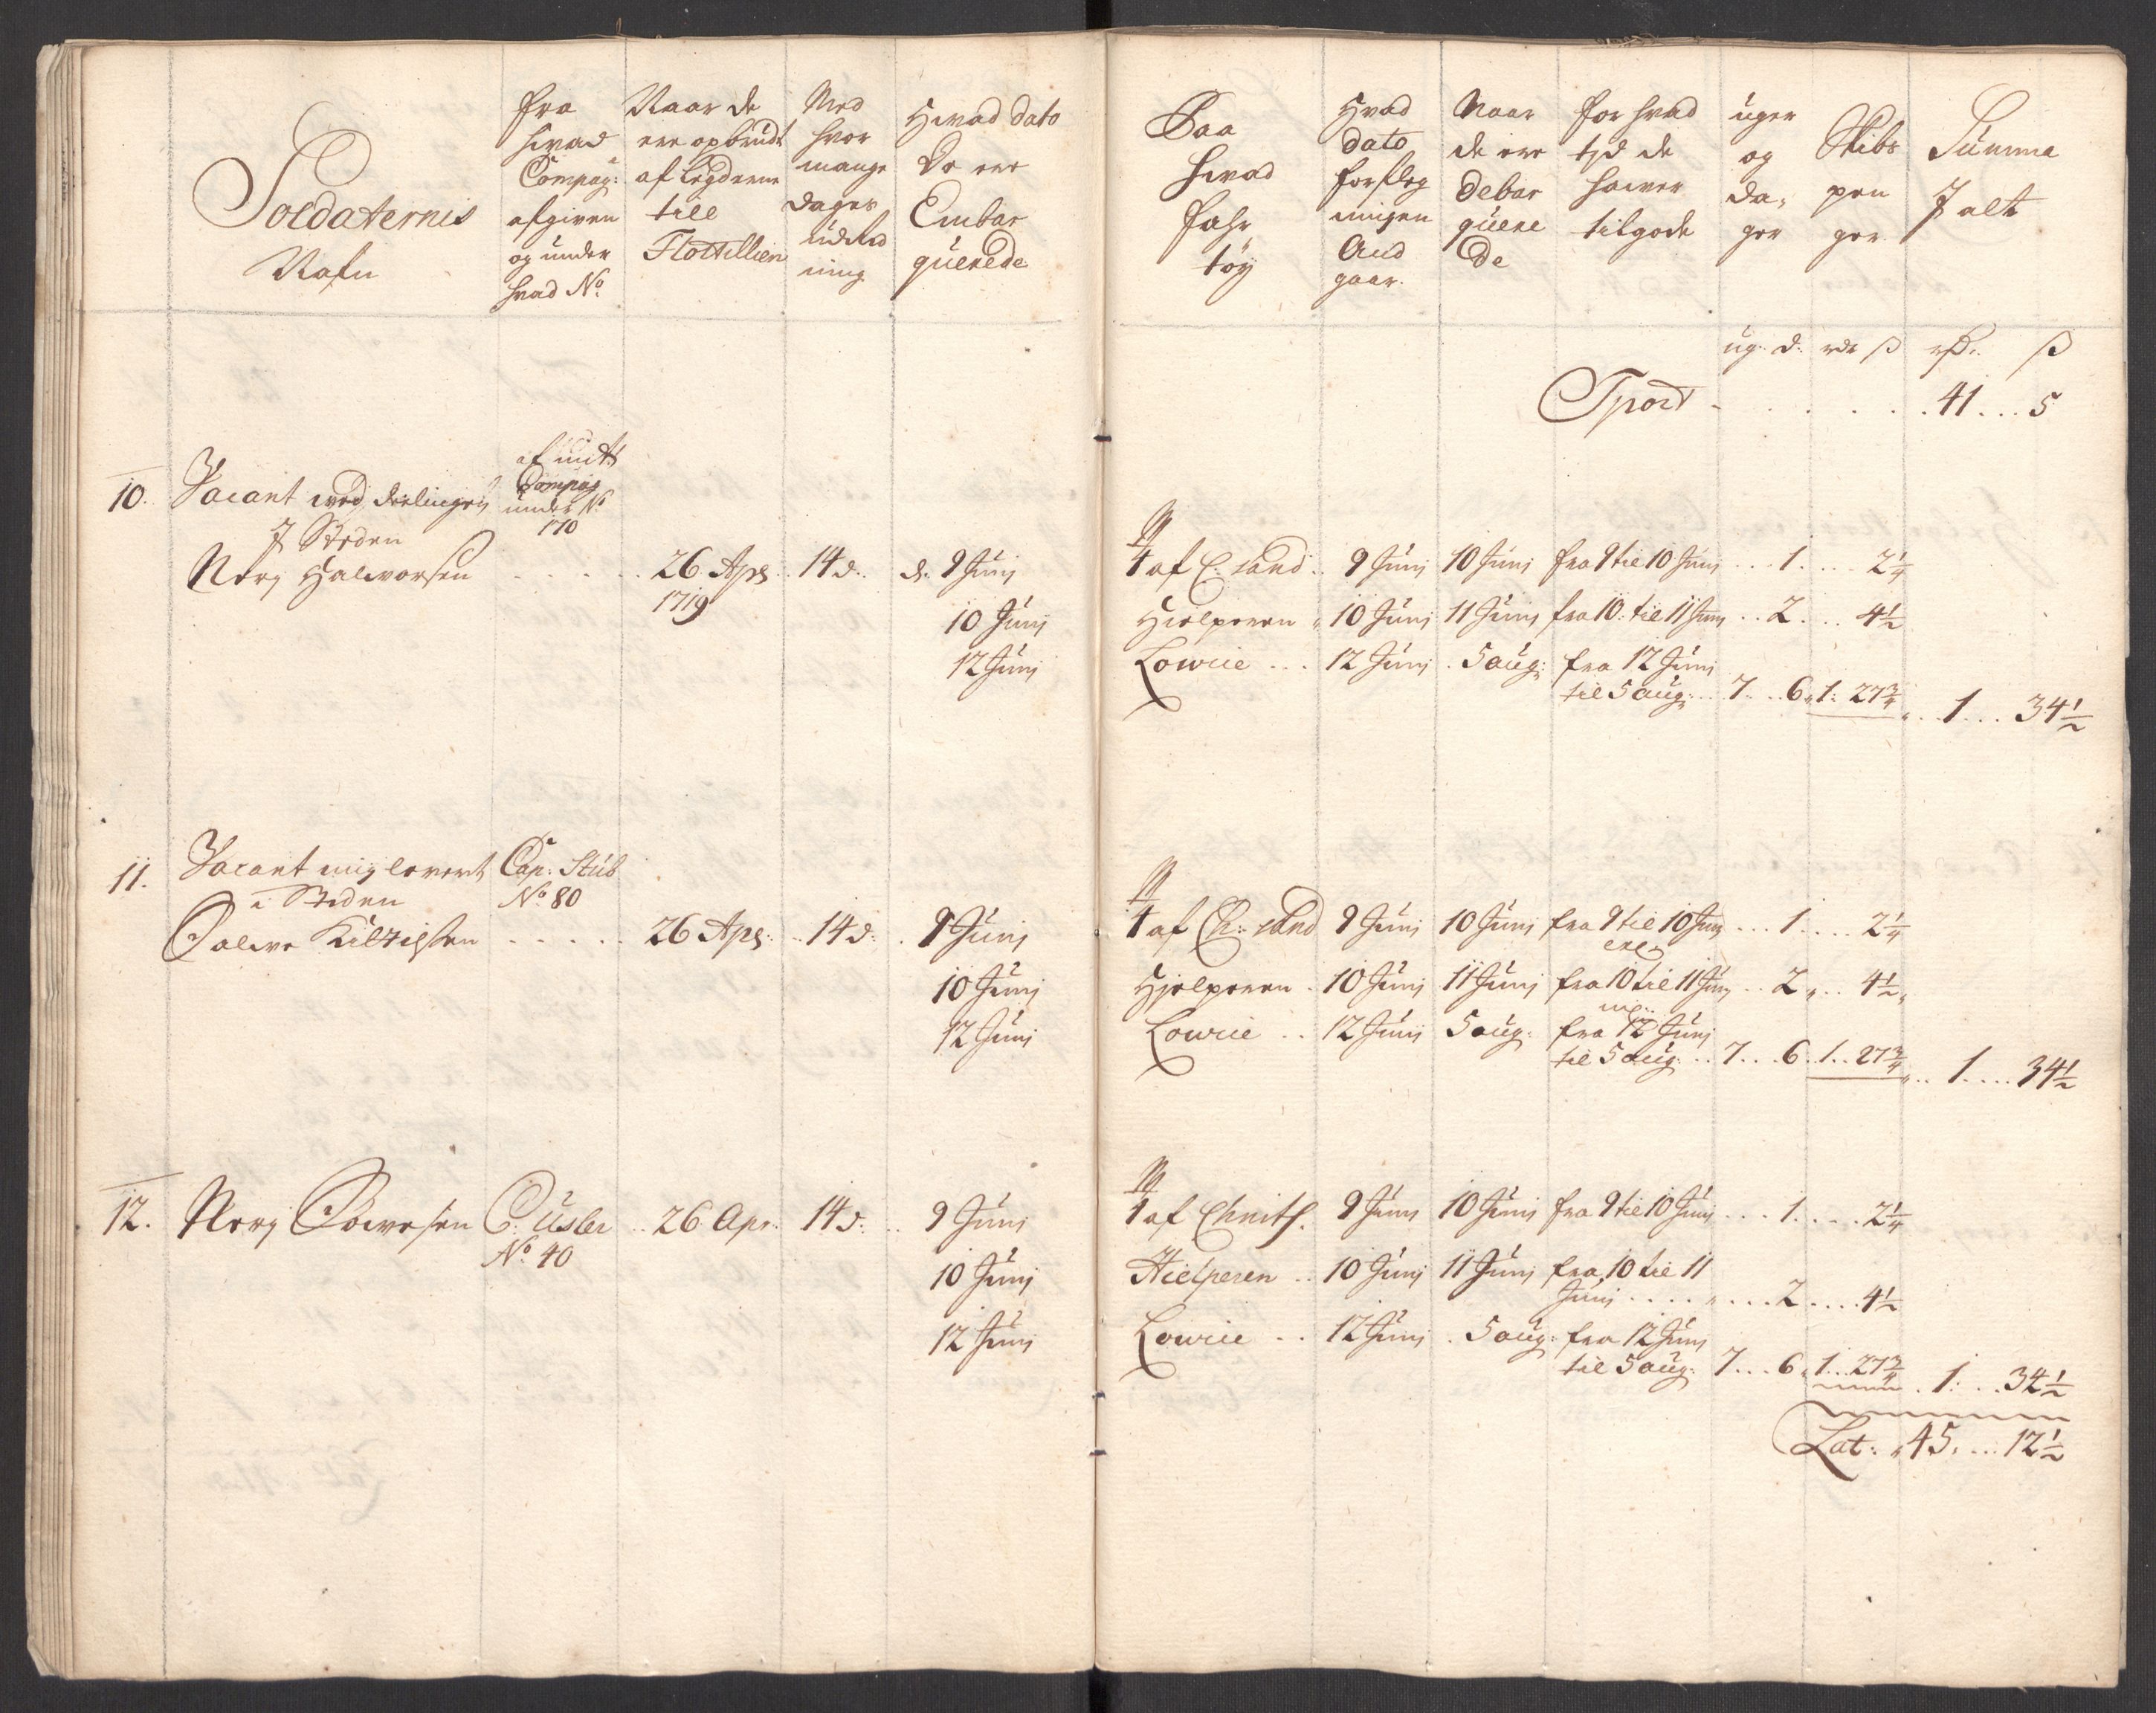 Soldaternis
Nafn
fra
hvad
Compag:
afgiven
og under
hvad No.
Naar de
ere opbrudt
af legderne
till
Flottillien
Med
hvor
mange
dager
ning
Hvad dato
De ere
Embar
querede
Paa
hvad
fahr
töy
Hvad
dato
forpleg
ningen
And
gaar.
Naar
de ere
debar
quere
de
for hvad
tyd de
hawer
tilgode
uger
og
da,
ger
Skibs
pen
ger
Summa
J alt
ug: d: rdr ß rdr. ß
Tport - . . . . . . 41 . . . 5
10. Vacant ved deelingen
J Steden
Compag
under No
170
Nery Halvorsen . . . . . 26 Apr. 14 d. d. 9 Junj
1719
10 Junj
12 Junj
4 af C. sand. 9 Junj 10 Junj fra 9 til 10 Junj . . . 1 . . . . 2 1/4
Hielperen 10 Junj 11 Junj fra 10 til 11 Junj . . 2 . . . 4 1/2
Lowise . . . 12 Junj . 5 aug: fra 12 Junj
til 5 aug: . . 7 . . 6 1: 27 3/4 . . 1 . . . 34 1/2
11. Vacant
i Steden
Cap: Stub
No 80
Salve Kiltilsen . . . . . 26 Apr: . . 14 d: . 9 Junj
10 Junj
12 Junj
4 af Ch: sand 9 Junj 10 Junj fra 9 til 10 Junj . . . 1 . . . . 2 1/4
Hjelperen . 10 Junj 11 Junj fra 10 til 11 Junj . . 2 . . 4 1/2
Lowise . . 12 Junj 5 aug: fra 12 Junj
til 5 aug . . 7 . . . 6 . 1 . . 27 3/4 . . 1 . . . . 34 1/2
12. Nery Sörensen C: Usler . . 26 Apr: 14 d: . . 9 Junj
No. 40
10 Junj
12 Junj
4 af 9 Junj 10 Junj fra 9 til 10 Junj . . . 1 . . . . 2 1/4
Hielperen . . 10 Junj 11 Junj fra 10 til 11
Junj . . . . . . . . 2 . . . . 4 1/2
Lowise . . 12 Junj . 5 aug: fra 12 Junj
til 5 aug: 7 . . . 6 1 . . 27 3/4 . 1 : . . 34 1/2
Lat: 45. . . . 12 1/2